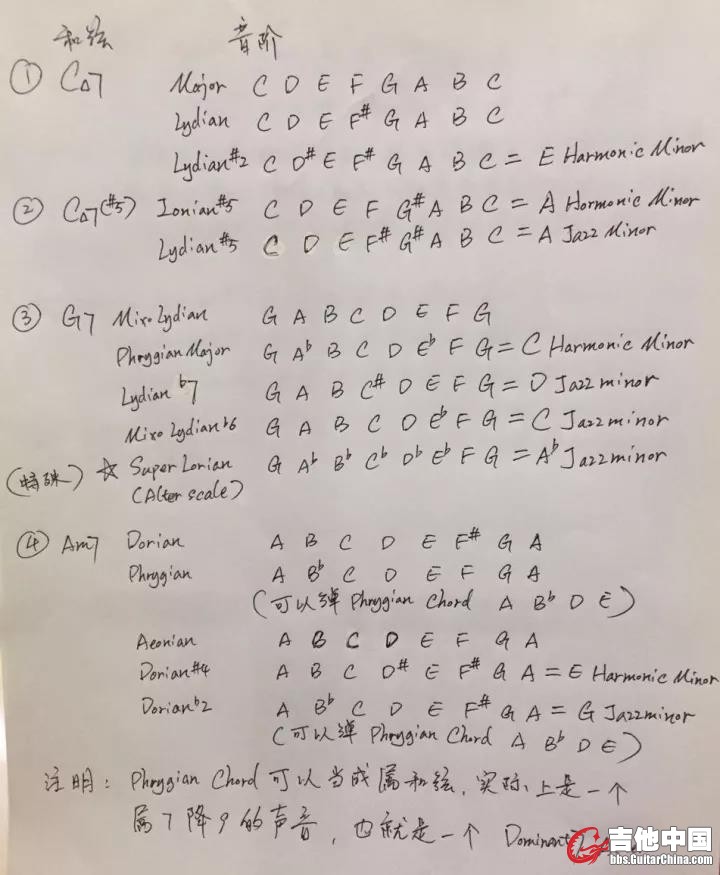 和弦 音阶
① C△7 Major C D E F G A B C
Lydian C D E F# G A B C
Lydian#2 C D# E F# G A B C = E Harmonic Minor
② C△7(#5) Ionian#5 C D E F G# A B C = A Hormonic Minor
Lydian#5 C D E F# G# A B C = A Jazz Minor
③ G7 Mixo Lydian G A B C D E F G
Phrygian Major G Ab B C D Eb F G = C Harmonic Minor
Lydian b7 G A B C# D E F G = D Jazz minor
Mixo Lydian b6 G A B C D Eb F G = C Jazz minor
(特殊) ☆ Super Lorian G Ab Bb Cb Db Eb F G = Ab Jazz minor
(Alter scale)
④ Am7 Dorian A B C D E F# G A
Phrygian A Bb C D E F G A
(可以弹 Phrygian Chord A Bb D E)
Aeonian A B C D E F G A
Dorian#4 A B C D# E F# G A = E Harmonic Minor
Dorian b2 A Bb C D E F# G A = G Jazz minor
(可以弹 Phrygian Chord A Bb D E)
注明: Phrygian Chord 可以当成属和弦,实际上是一个
属7降9的声音,也就是一个 Dominant
吉他中国
bbs.GuitarChina.com